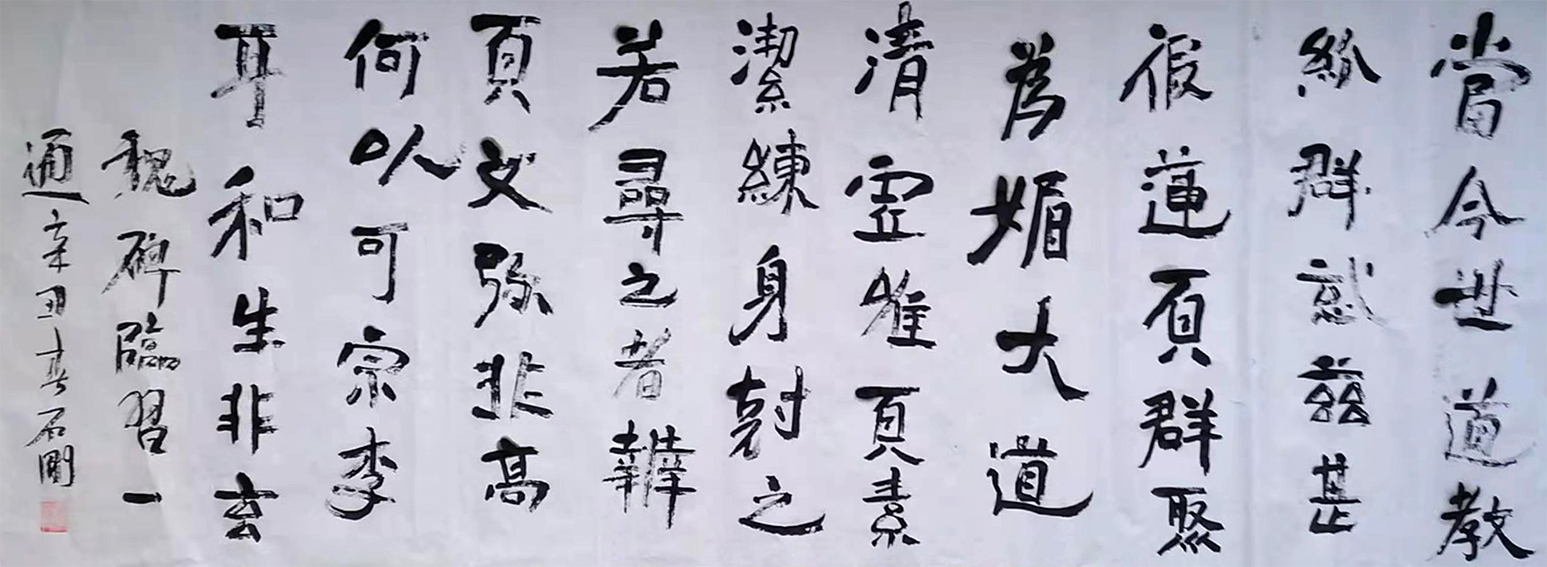 當今世道教
紛群就茲甚
假蓮頁群聚
為媚大道
清虛惟頁素
潔練身尅之
若尋之者辨
頁文弥非高
何以可宗李
耳和生非玄
魏碑臨習一
通辛丑春石剛